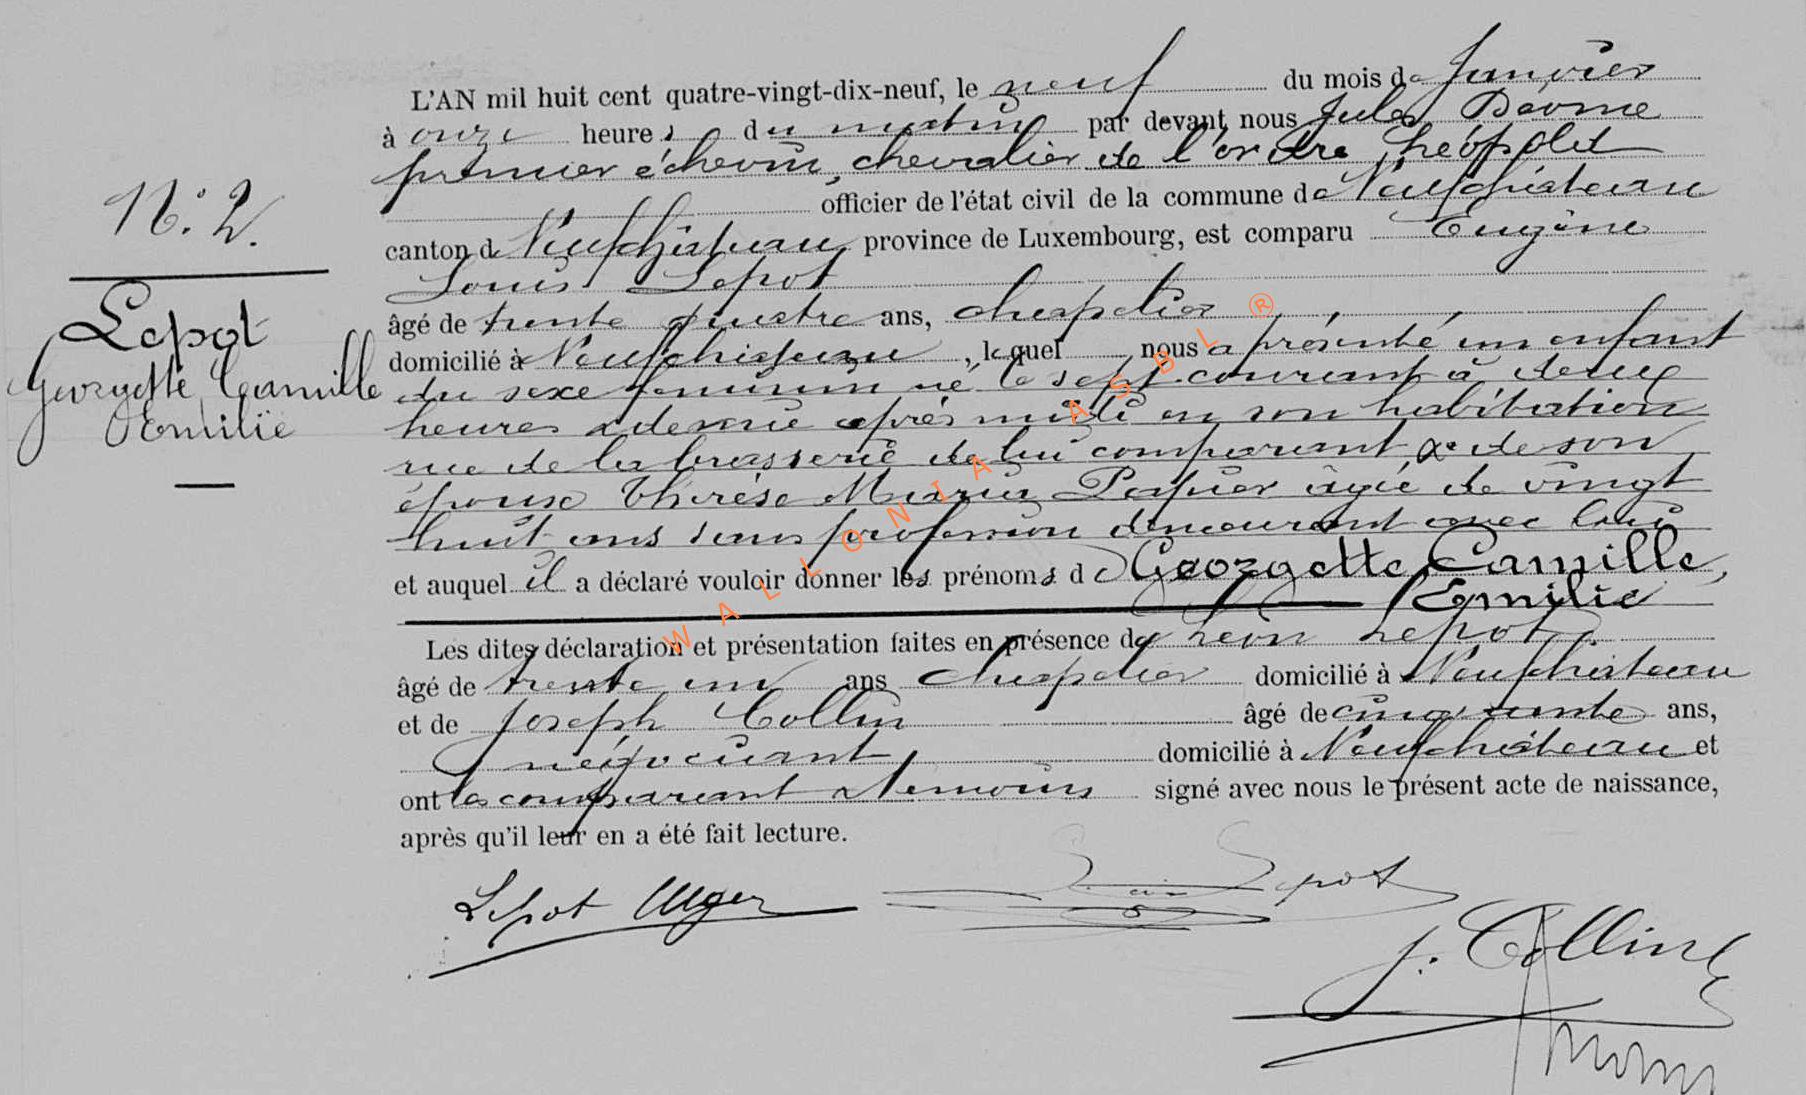 N.° 2.
Lepot
Georgette Camille
Emilie
L'AN mil huit cent quatre-vingt-dix-neuf, le neuf du mois de Janvier
à onze heures du matin par devant nous Jules
premier échevin, chevalier de l'ordre Léopold
officier de l'état civil de la commune de Neufchâteau
canton de Neufchâteau province de Luxembourg, est comparu Eugène
Louis Lepot
âgé de trente quatre ans, chapelier
domicilié à Neufchâteau, lequel nous a présenté un enfant
du sexe féminin né le sept courant à deux
heures & demie après midi en son habitation
rue de la brasserie de lui comparant & de son
épouse Thérèse Maria Papier âgée de vingt
huit ans sans profession demeurant avec lui
et auquel il a déclaré vouloir donner les prénoms de Georgette, Camille,
Emilie
Les dites déclaration et présentation faites en présence de Léon Lepot
âgé de trente un ans chapelier domicilié à Neufchâteau
et de Joseph Collin âgé de cinquante ans,
négociant domicilié à Neufchâteau et
ont les comparant & témoins signé avec nous le présent acte de naissance,
après qu'il leur en a été fait lecture.
Lepot
Léon Lepot
J. Collin
WALLONIA ASBL ®